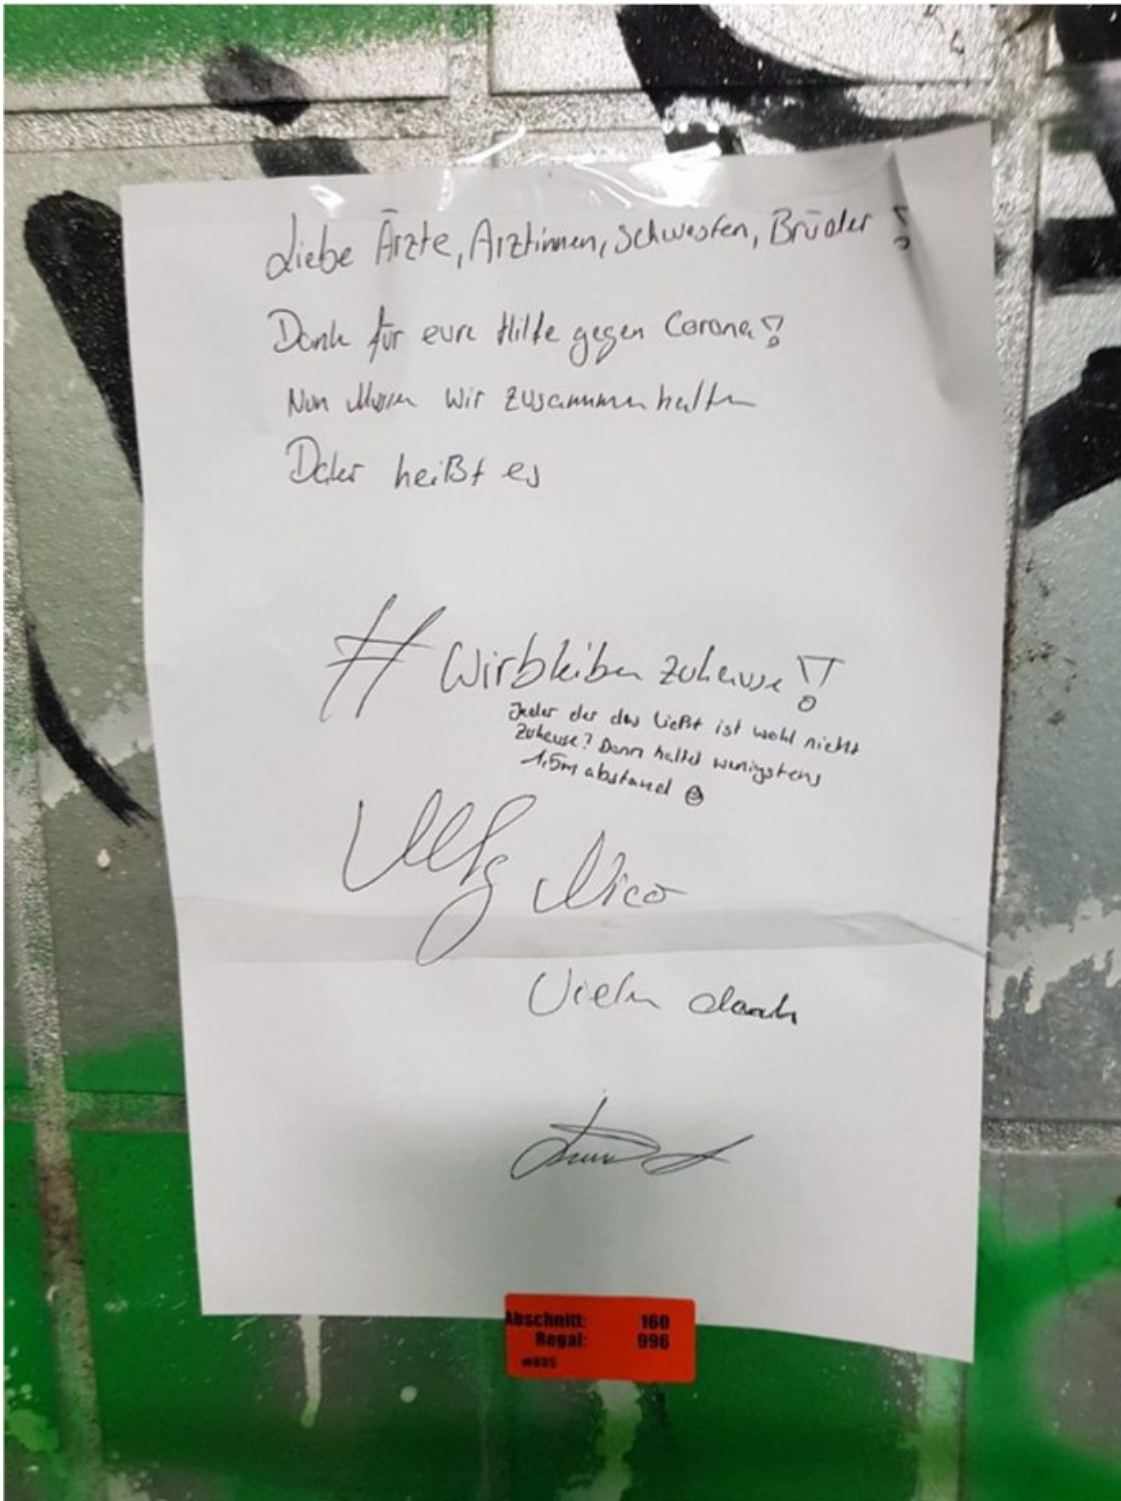 Liebe Ärzte, Arztinnen, Schwestern, Brüder!
Dank für eure Hilfe gegen Corona!
Nun Müssen wir zusammenhalten
Daher heißt es
# Wirbleiben zuhause!
Jeder der das ließt ist wohl nicht
Zuhause? Dann haltet wenigstens
1,5m abstand
Mfg Nico
Vielen dank
Abschnitt: 160
Regal: 996